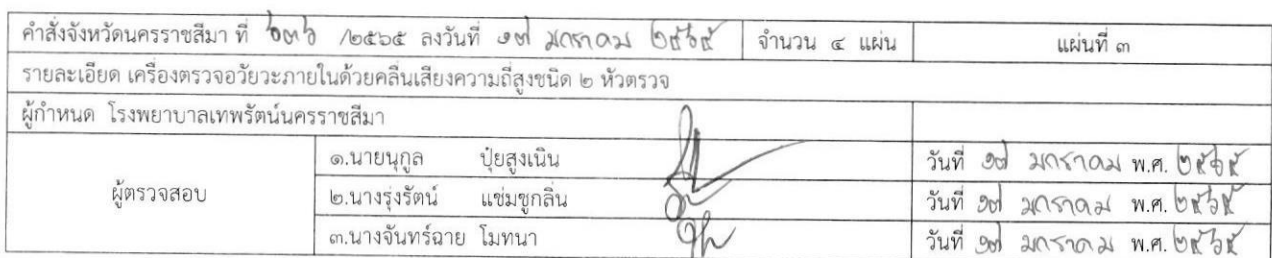 คำสั่งจังหวัดนครราชสีมา ที่ ๖๓๖ /๒๕๖๕ ลงวันที่ ๑๗ มกราคม ๒๕๖๕ จำนวน ๔ แผ่น แผ่นที่ ๓
รายละเอียด เครื่องตรวจอวัยวะภายในด้วยคลื่นเสียงความถี่สูงชนิด ๒ หัวตรวจ
ผู้กำหนด โรงพยาบาลเทพรัตน์นครราชสีมา
๑.นายนุกูล ปุ๋ยสูงเนิน วันที่ ๑๗ มกราคม พ.ศ. ๒๕๖๕
ผู้ตรวจสอบ ๒.นางรุ่งรัตน์ แช่มชูกลิ่น วันที่ ๑๗ มกราคม พ.ศ. ๒๕๖๕
๓.นางจันทร์ฉาย โมทนา วันที่ ๑๗ มกราคม พ.ศ. ๒๕๖๕